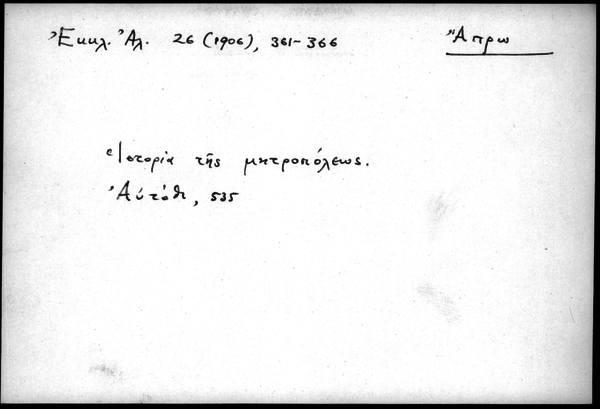 Ἐκκλ. Ἀλ. 26 (1906), 361-366
Ἄπρω
Ἱστορία τῆς μητροπόλεως.
Αὐτόθι, 535